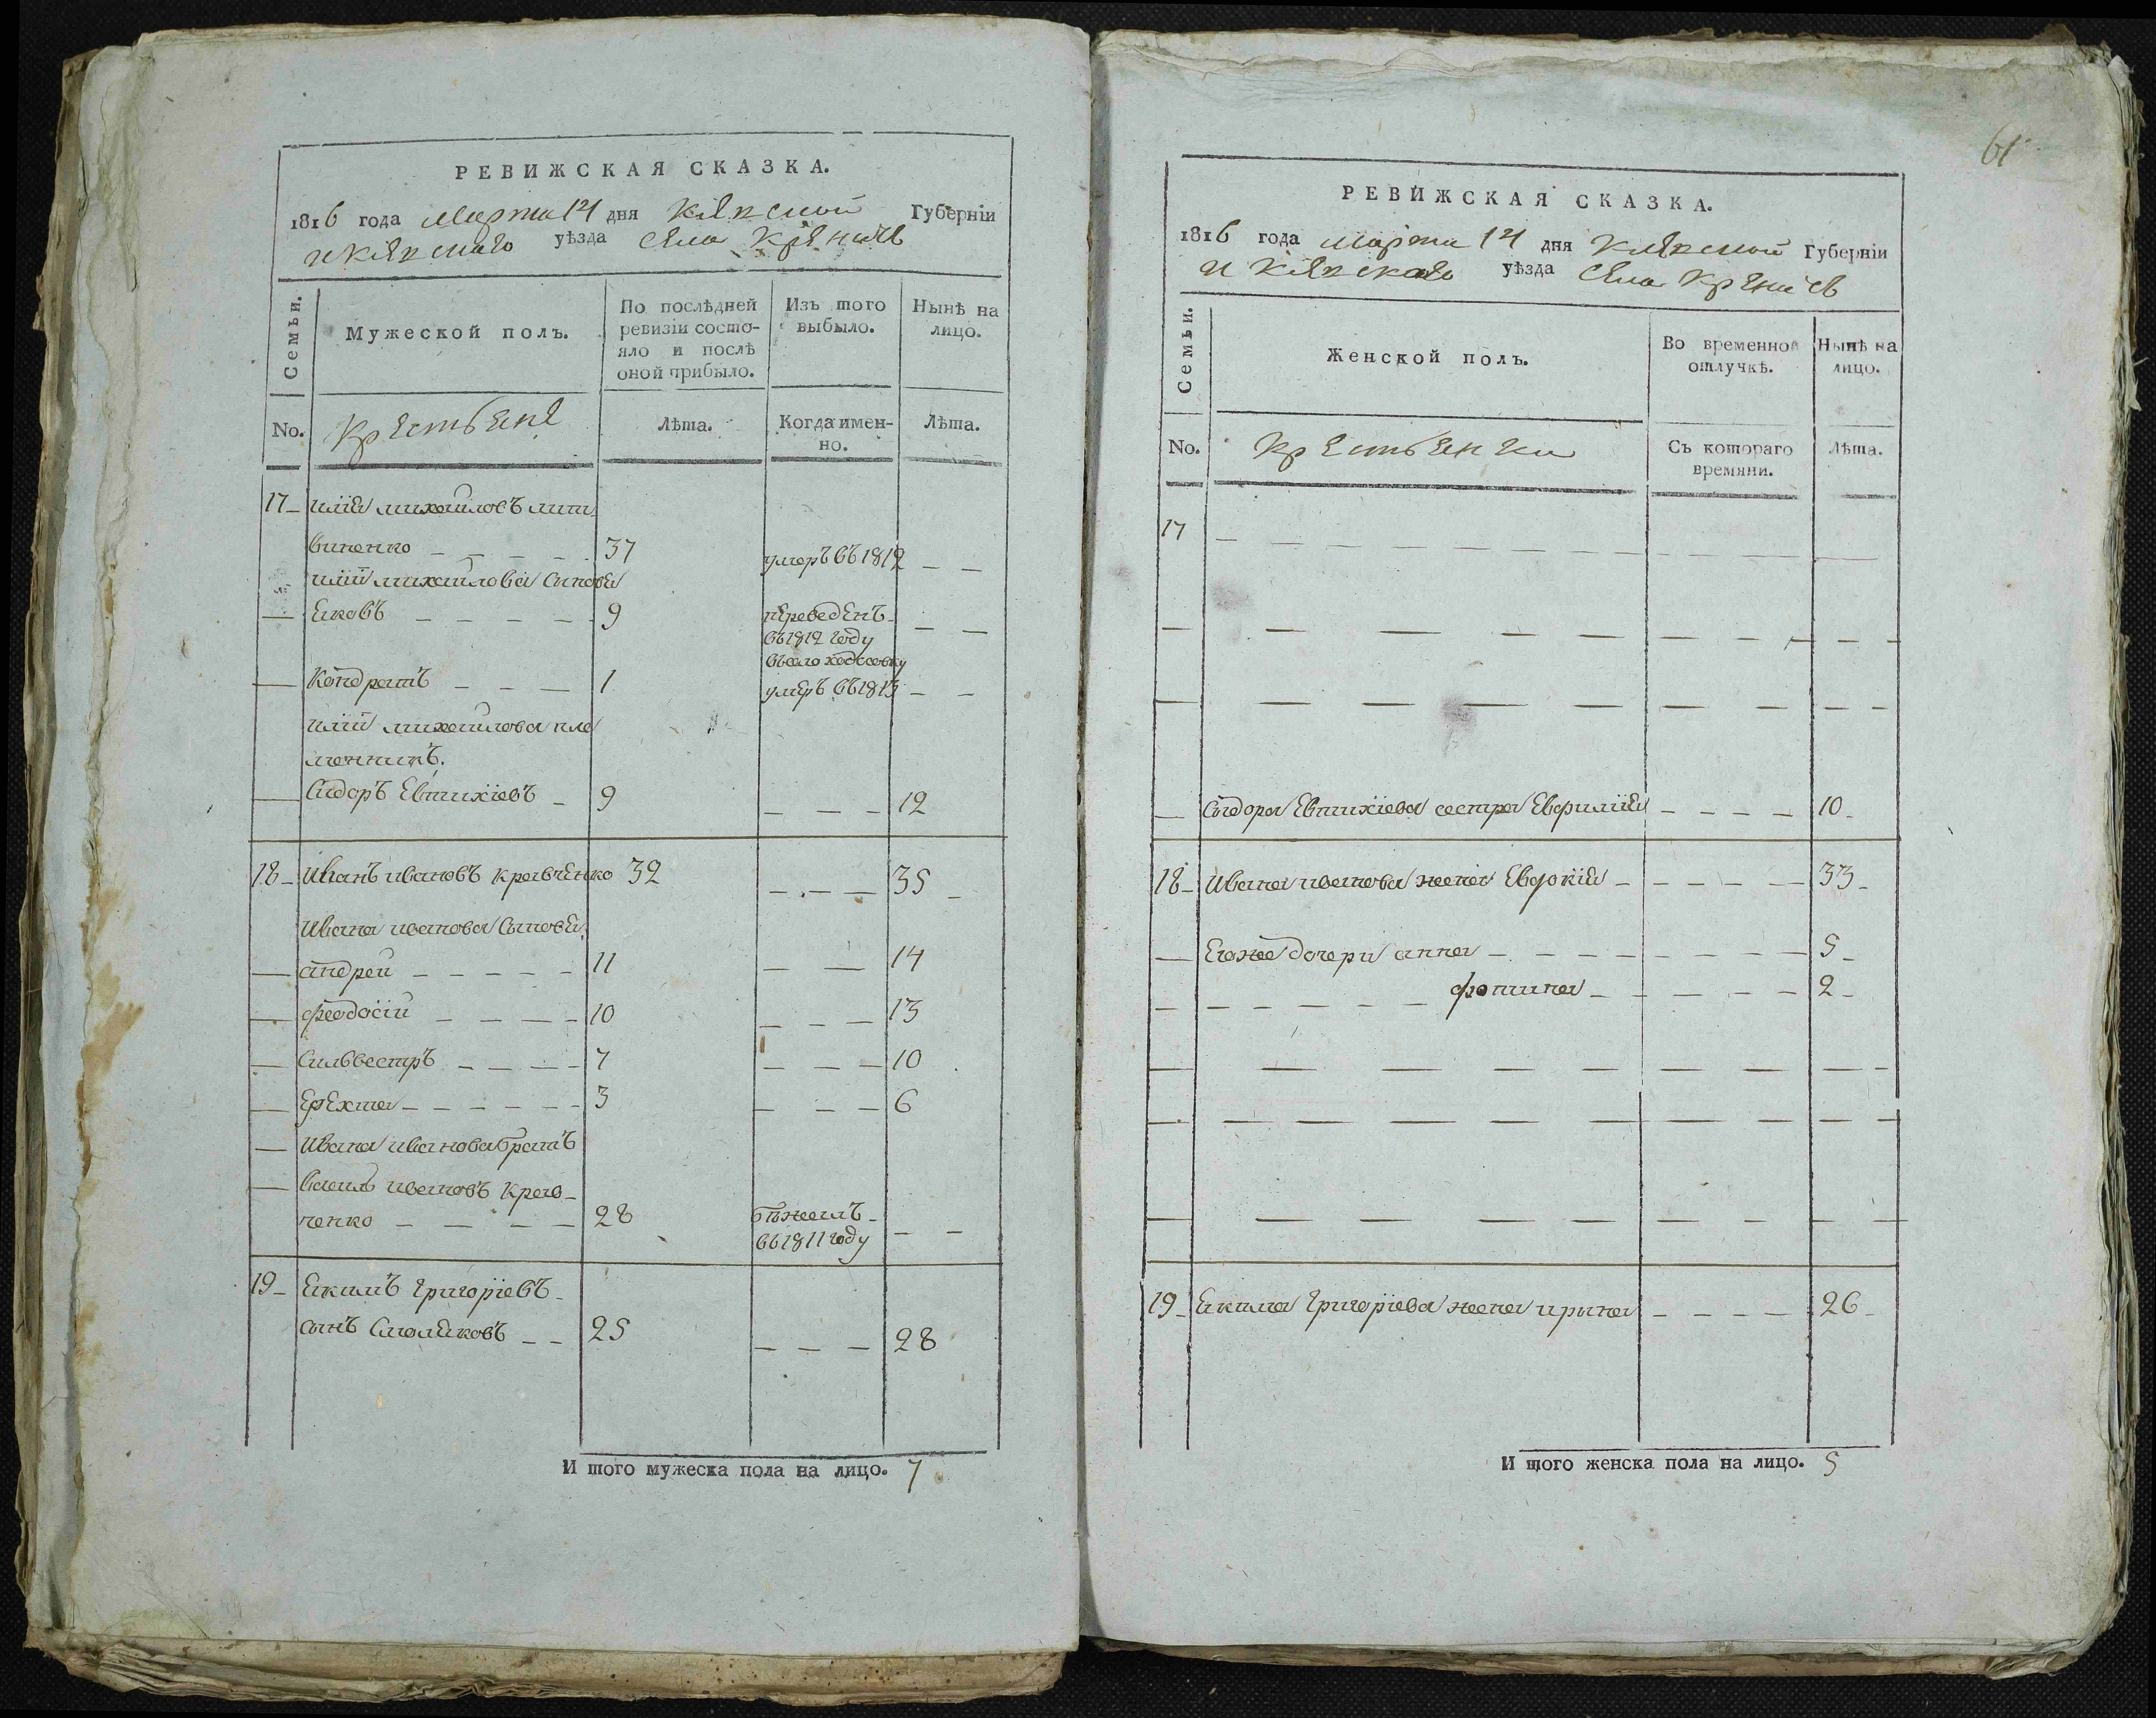 РЕВИЖСКАЯ СКАЗКА.
1816 года Марта 14 дня Киевской Губерніи
и Киевскаго уѣзда села Креничъ
Семьи.
Мужеской полъ.
По послѣдней
ревизіи состо-
яло и послѣ
оной прибыло.
Изъ того
выбыло.
Нынѣ на
лицо.
No.
Крестьяне
Лѣта.
Когда имен-
но.
Лѣта.
17 Илія михайловъ лит
виненко 37 умеръ въ 1812
иліи михайлова Сыновя
Яковъ 9 переведенъ
въ 1812 году
въ село
Кондратъ 1 умеръ въ 1813
иліи михайлова пле
менникъ.
Сидоръ Евтихіевъ 9 12
18 Иванъ ивановъ кравченко 32 35
Ивана иванова Сыновя
андрей 11 14
феодосіи 10 13
Сильвестръ 7 10
3 6
Ивана иванова братъ
Василь ивановъ крав-
ченко 28 бѣжалъ
въ 1811 году
19 Якимъ Григоріевъ
сынъ Смоляковъ 25 28
И того мужеска пола на лицо. 7
61
РЕВИЖСКАЯ СКАЗКА.
1816 года Марта 14 дня Киевской Губерніи
и Киевскаго уѣзда села Креничъ
Семьи.
Женской полъ.
Во временной
отлучкѣ.
Нынѣ на
лицо.
No.
Крестьянки
Съ котораго
времяни.
Лѣта.
17
Сидора Евтихіева сестра Евфимія 10
18 Ивана иванова жена Евдокія 33
Егоже дочери анна 5
фотина 2
19 Якима Григоріева жена ирина 26
И того женска пола на лицо. 5